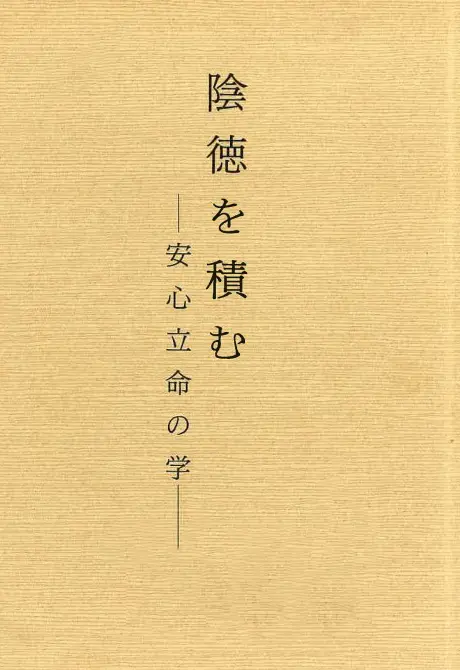 陰徳を積む
―安心立命の学―